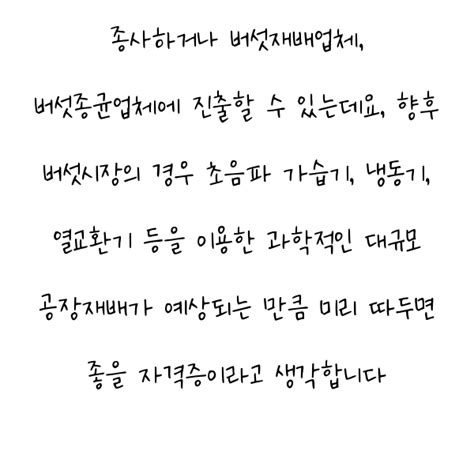 종사하거나 버섯재배업체,
버섯종균업체에 진출할 수 있는데요, 향후
버섯시장의 경우 초음파 가습기, 냉동기,
열교환기 등을 이용한 과학적인 대규모
공장재배가 예상되는 만큼 미리 따두면
좋을 자격증이라고 생각합니다